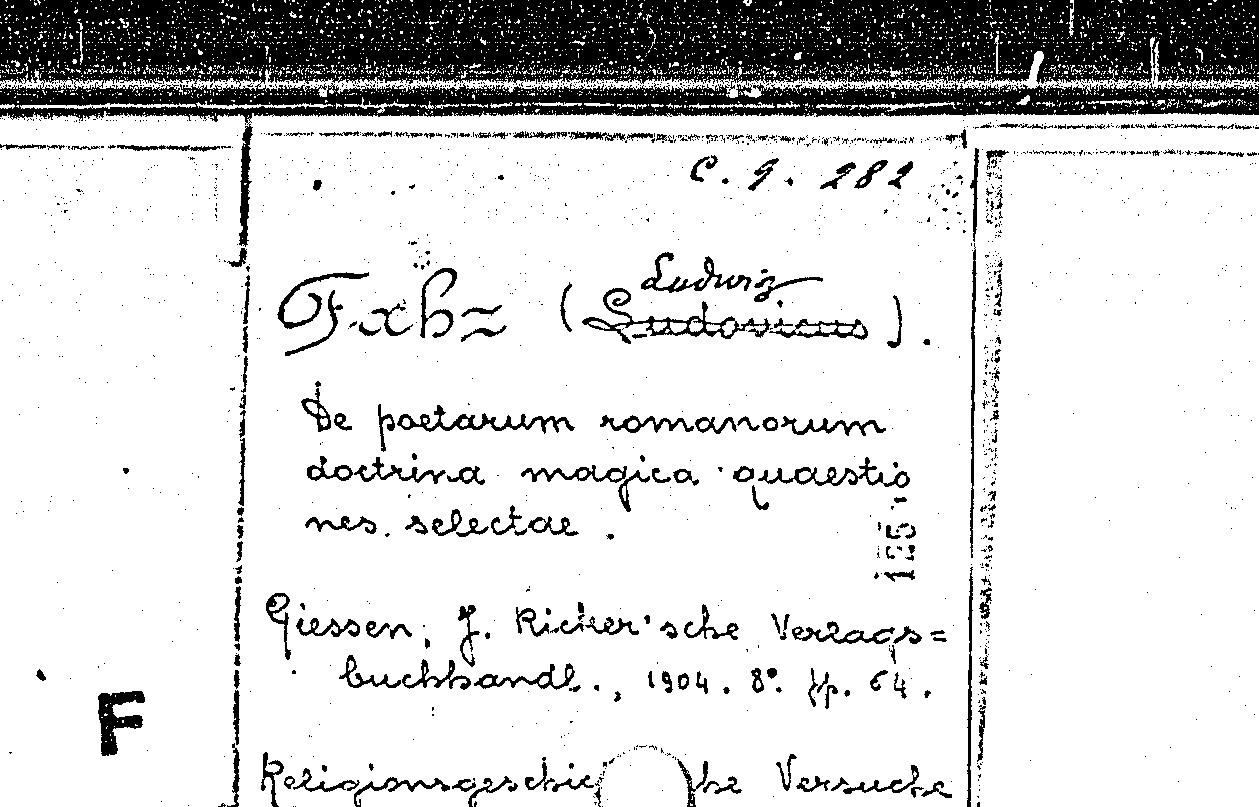 C. 9. 282
Ludwig
Fahz (Ludovicus).
De poetarum romanorum
doctrina magica quaestio
nes selectae.
125
Giessen, J. Ricker'sche Verlags=
buchhandl., 1904. 8°. pp. 64.
F
Versuche